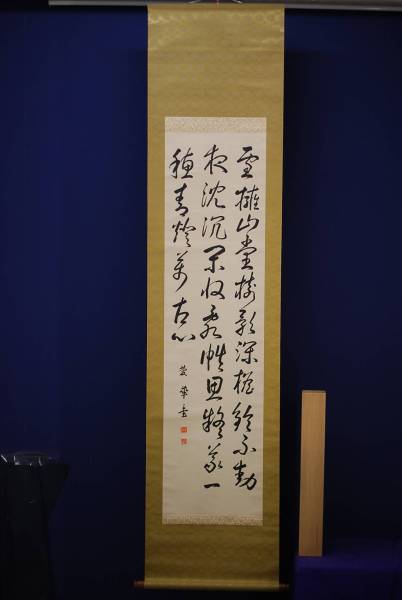 雪擁山堂樹影深檐鈴不動
夜沈沉閑収乱帙思疑義一
穂青燈萬古心
華書